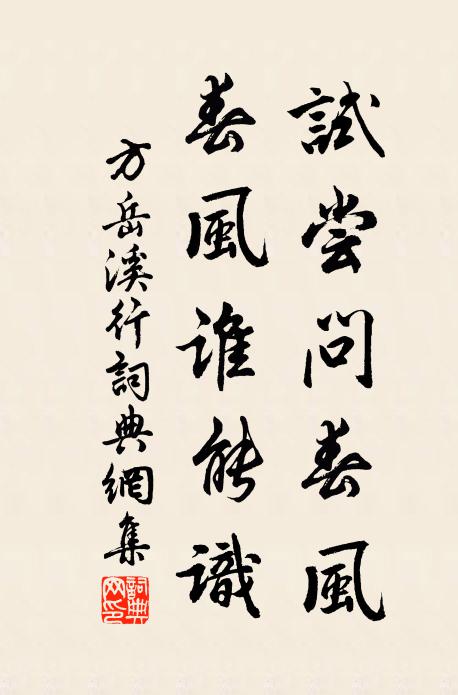 試嘗問春風
春風誰能識
方岳溪行詞典網集
詞典
网印